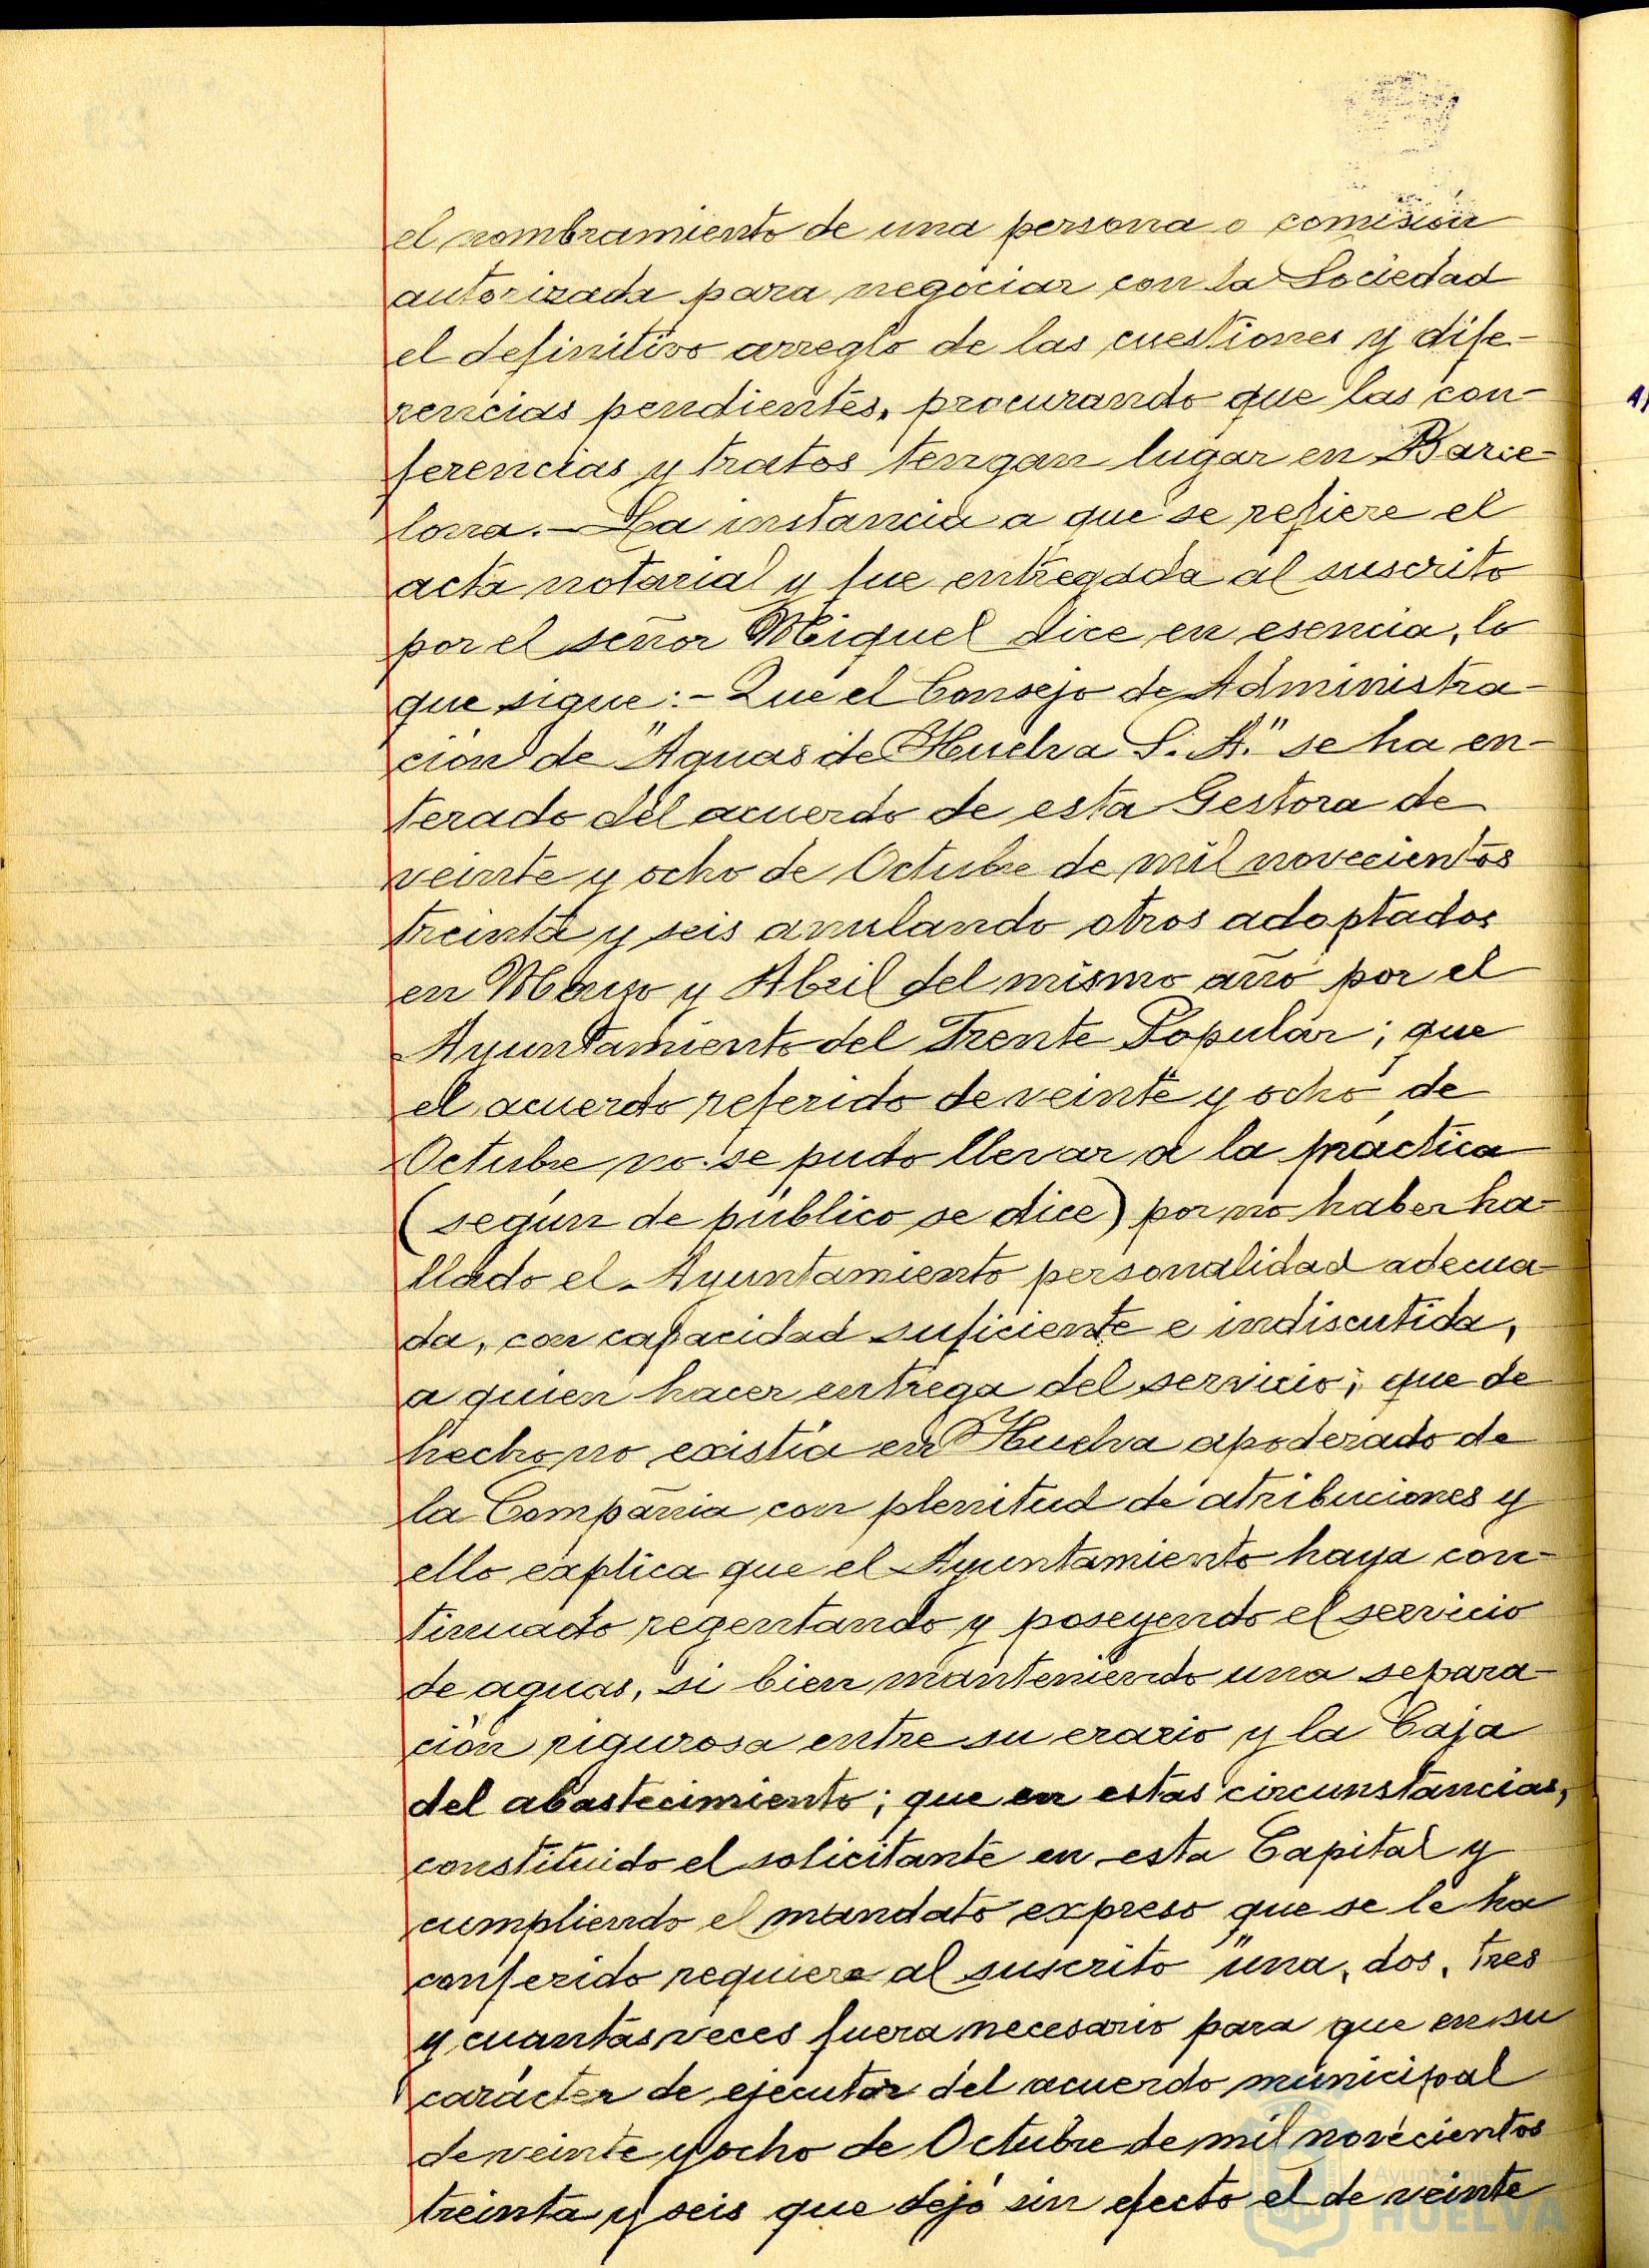 el nombramiento de una persona o comisión
autorizada para negociar con la Sociedad
el definitivo arreglo de las cuestiones y dife-
rencias pendientes, procurando que las con-
ferencias y tratos tengan lugar en Barce-
lona.- La instancia a que se refiere el
acta notarial y fue entregada al suscrito
por el señor Miquel dice en esencia, lo
que sigue:- Que el Consejo de Administra-
ción de "Aguas de Huelva S. A." se ha en-
terado del acuerdo de esta Gestora de
veinte y ocho de Octubre de mil novecientos
treinta y seis anulando otros adoptados
en Marzo y Abril del mismo año por el
Ayuntamiento del Frente Popular; que
el acuerdo referido de veinte y ocho de
Octubre no se pudo llevar a la práctica
(según de público se dice) por no haber ha-
llado el Ayuntamiento personalidad adecua-
da, con capacidad suficiente e indiscutida,
a quien hacer entrega del servicio; que de
hecho no existía en Huelva apoderado de
la Compañia con plenitud de atribuciones y
ello explica que el Ayuntamiento haya con-
tinuado regentando y poseyendo el servicio
de aguas, si bien manteniendo una separa-
ción rigurosa entre su erario y la Caja
del abastecimiento; que en estas circunstancias,
constituido el solicitante en esta Capital y
cumpliendo el mandato expreso que se le ha
conferido requiere al suscrito "una, dos, tres
y cuantas veces fuera necesario para que en su
carácter de ejecutor del acuerdo municipal
de veinte y ocho de Octubre de mil novecientos
treinta y seis que dejó sin efecto el de veinte
Ayuntamiento
HUELVA